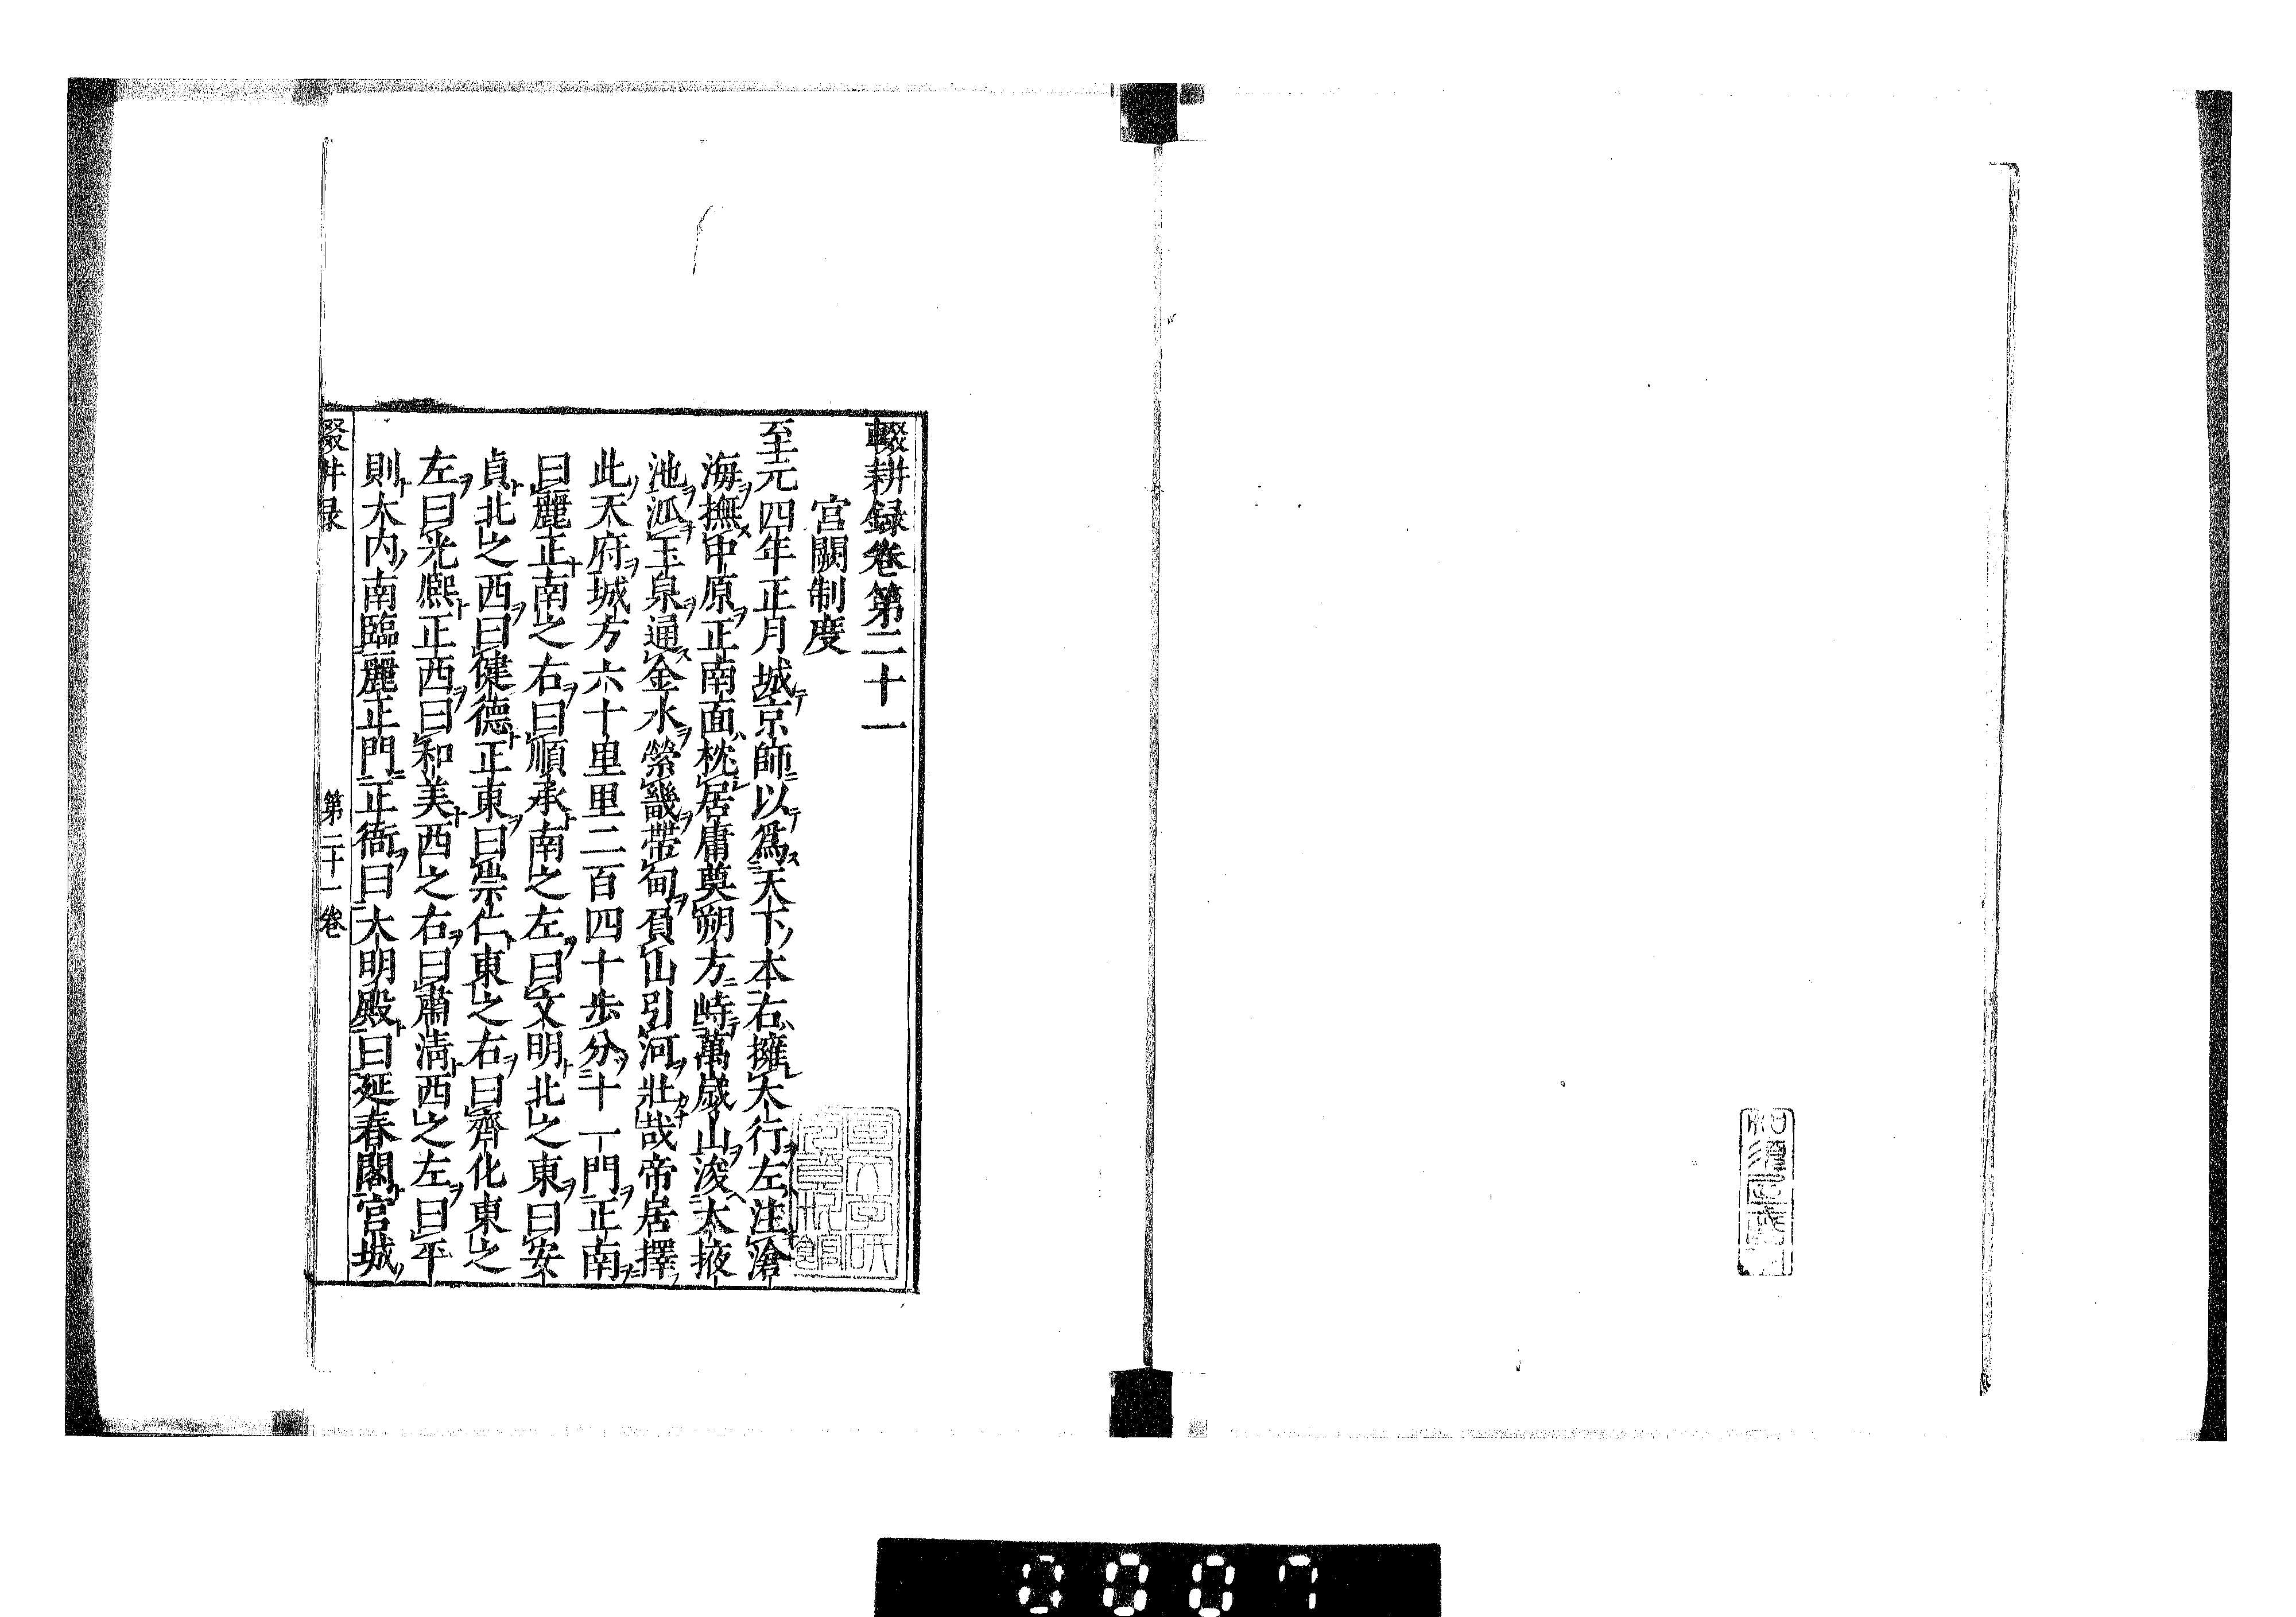 輟耕録卷第二十一
宮闕制度
至元四年正月城京師以爲天下本右擁太行左注滄
海撫中原正南面枕居庸奠朔方峙萬歲山浚太掖
池𣲖玉泉通金水縈畿帶甸負山引河壯哉帝居擇
此天府城方六十里里二百四十歩分十一門正南
曰麗正南之右曰順承南之左曰文明北之東曰安
貞北之西曰健德正東曰崇仁東之右曰齊化東之
左曰光熈正西曰和義西之右曰肅淸西之左曰平
則大内南臨麗正門正衙曰大明殿曰延春閣宮城
輟耕録 第二十一卷
0007